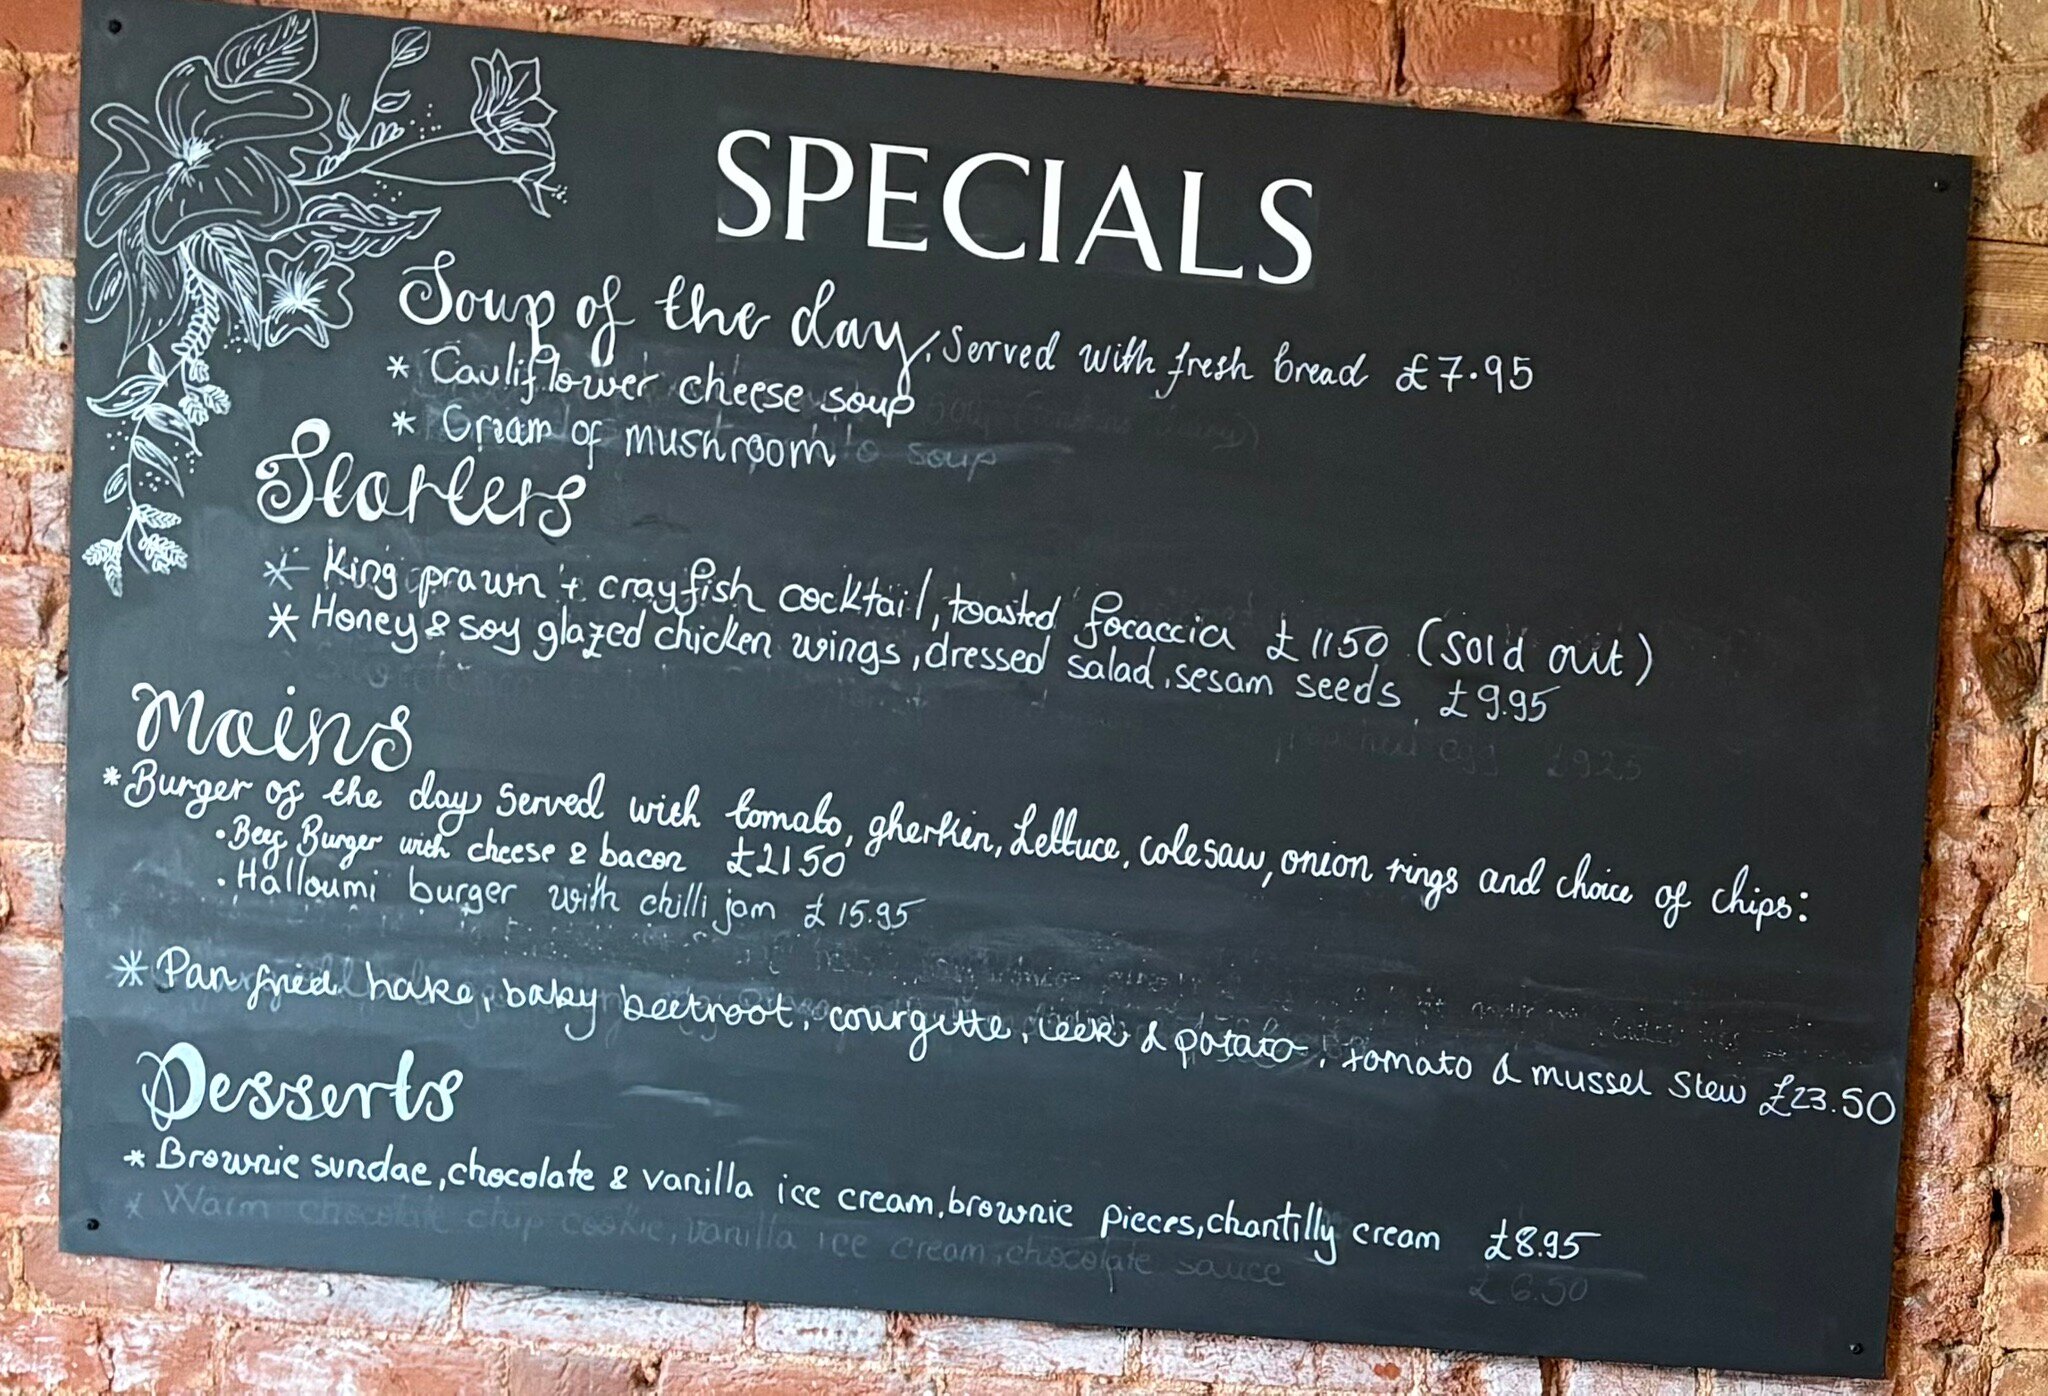 SPECIALS
Soup of the day, Served with fresh bread £7.95
* Cauliflower cheese soup
* Cream of mushroom soup
Starters
* King prawn + crayfish cocktail, toasted focaccia £1150 (Sold out)
* Honey & soy glazed chicken wings, dressed salad, sesam seeds £9.95
poached egg £9.25
Mains
* Burger of the day served with tomato, gherkin, Lettuce, colesaw, onion rings and choice of chips:
• Beef Burger with cheese & bacon £2150
• Halloumi burger with chilli jam £15.95
* Pan fried hake, baby beetroot, courgette, leek & potato, tomato & mussel stew £23.50
Desserts
* Brownie sundae, chocolate & vanilla ice cream, brownie pieces, chantilly cream £8.95
* Warm chocolate chip cookie, vanilla ice cream, chocolate sauce £6.50